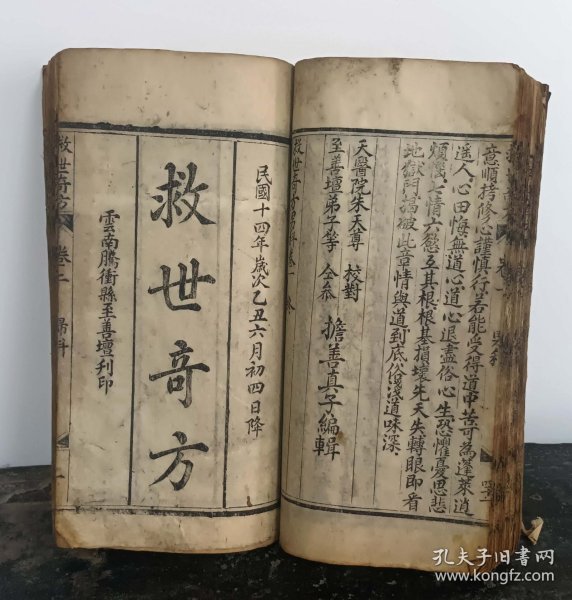 意順拷修心謹慎行若能受得道中苦可為蓬萊逍
遥人心田悔無道心道心退盡俗心生恐懼憂思悲
煩惱七情六慾互其根根基損壞先天失轉眼即看
地獄門搗破此章情與道到底俗淺道味深
天醫院朱天尊 校對
至善壇弟子等 仝叅 擔善真子編輯
救世奇方 卷一 終
民國十四年歲次乙丑六月初四日降
救世奇方
雲南騰衝縣至善壇刊印
救世奇方 卷二
孔夫子旧书网
www.kongfz.com